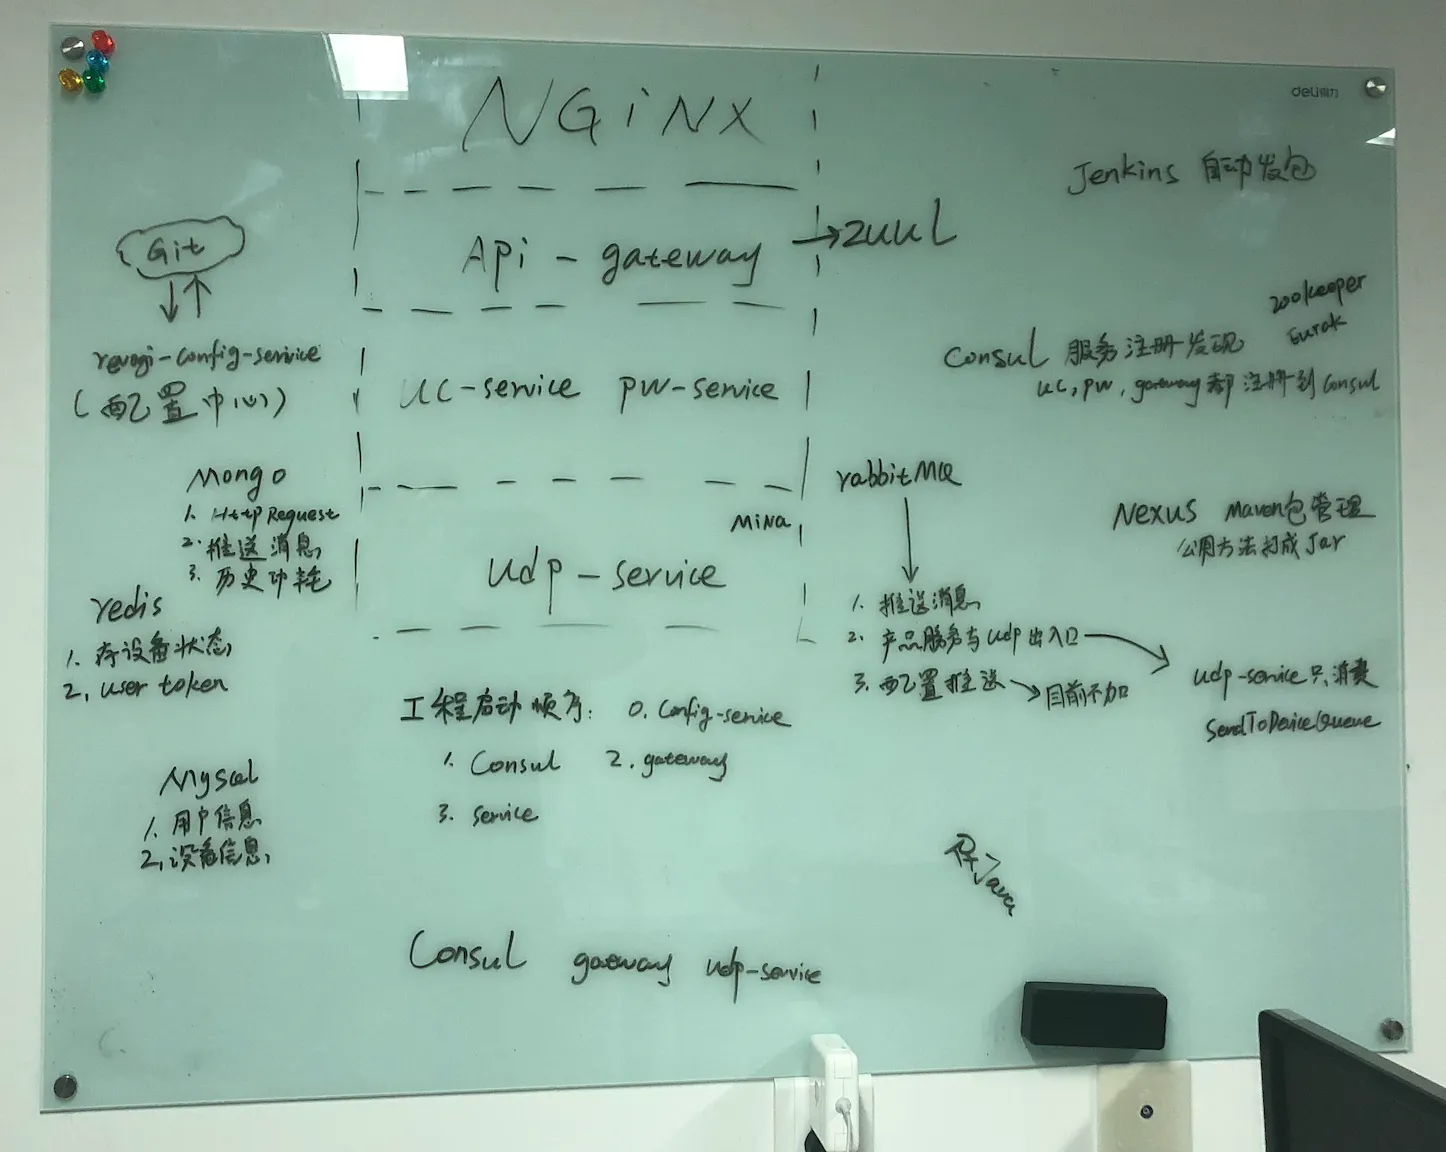 NGiNX
deli得力
Jenkins 自动发包
Git
Api - gateway → zuul
zookeeper
Eurak
revogi-config-service
(配置中心)
Consul 服务注册发现
uc, pw, gateway都注册到Consul
uc-service pw-service
Mongo
1. HttpRequest
2. 推送消息
3. 历史功耗
rabbitMQ
MiNa
Nexus Maven包管理
公用方法打成Jar
udp-service
redis
1. 存设备状态
2. user token
1. 推送消息
2. 产品服务与udp出入口
3. 配置推送 → 目前不加
udp-service只消费
SendToDeviceQueue
工程启动顺序: 0. Config-service
1. Consul 2. gateway
3. service
Mysql
1. 用户信息
2. 设备信息
Java
Consul gateway udp-service